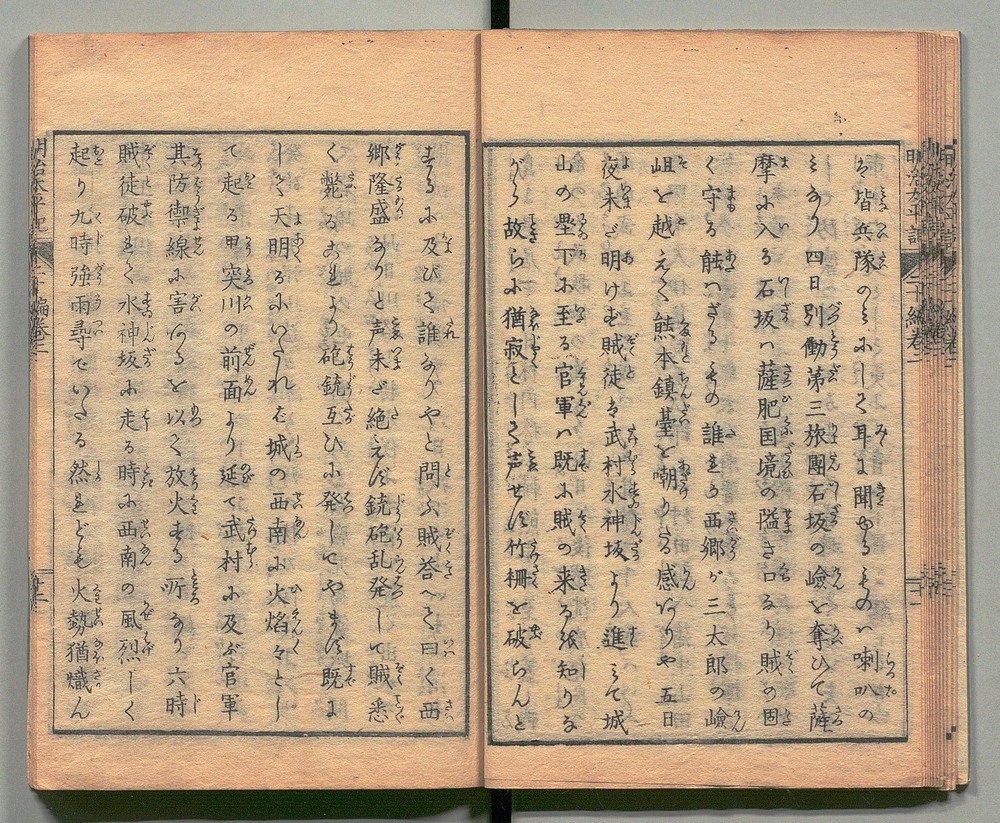 は皆兵隊のミにして耳に聞ゆるものハ喇叭の
ミなり四日別働第三旅團石坂の嶮を奪ひて薩
摩に入る石坂ハ薩肥国境の隘き口なり賊の固
く守る能ハざるもの誰れか西郷が三太郎の嶮
岨を越えて熊本鎮臺を嘲りたる感ありや五日
夜未だ明けず賊徒は武村水神坂より進ミて城
山の壘下に至る官軍ハ既に賊の来るを知りな
がら故らに猶寂として声せず竹柵を破らんと
するに及びて誰なりやと問ふ賊荅へて曰く西
郷隆盛なりと声未だ絶えず銃砲乱発して賊悉
く斃るこれより砲銃互ひに発してやまず既に
して天明るにいたれバ城の西南に火焰々とし
て起る甲突川の前面より延て武村に及ぶ官軍
其防禦線に害あるを以て放火する所なり六時
賊徒破れて水神坂に走る時に西南の風烈しく
起り九時強雨尋でいたる然れども火勢猶熾ん
明治太平記
十編巻二
明治太平記
十編巻二